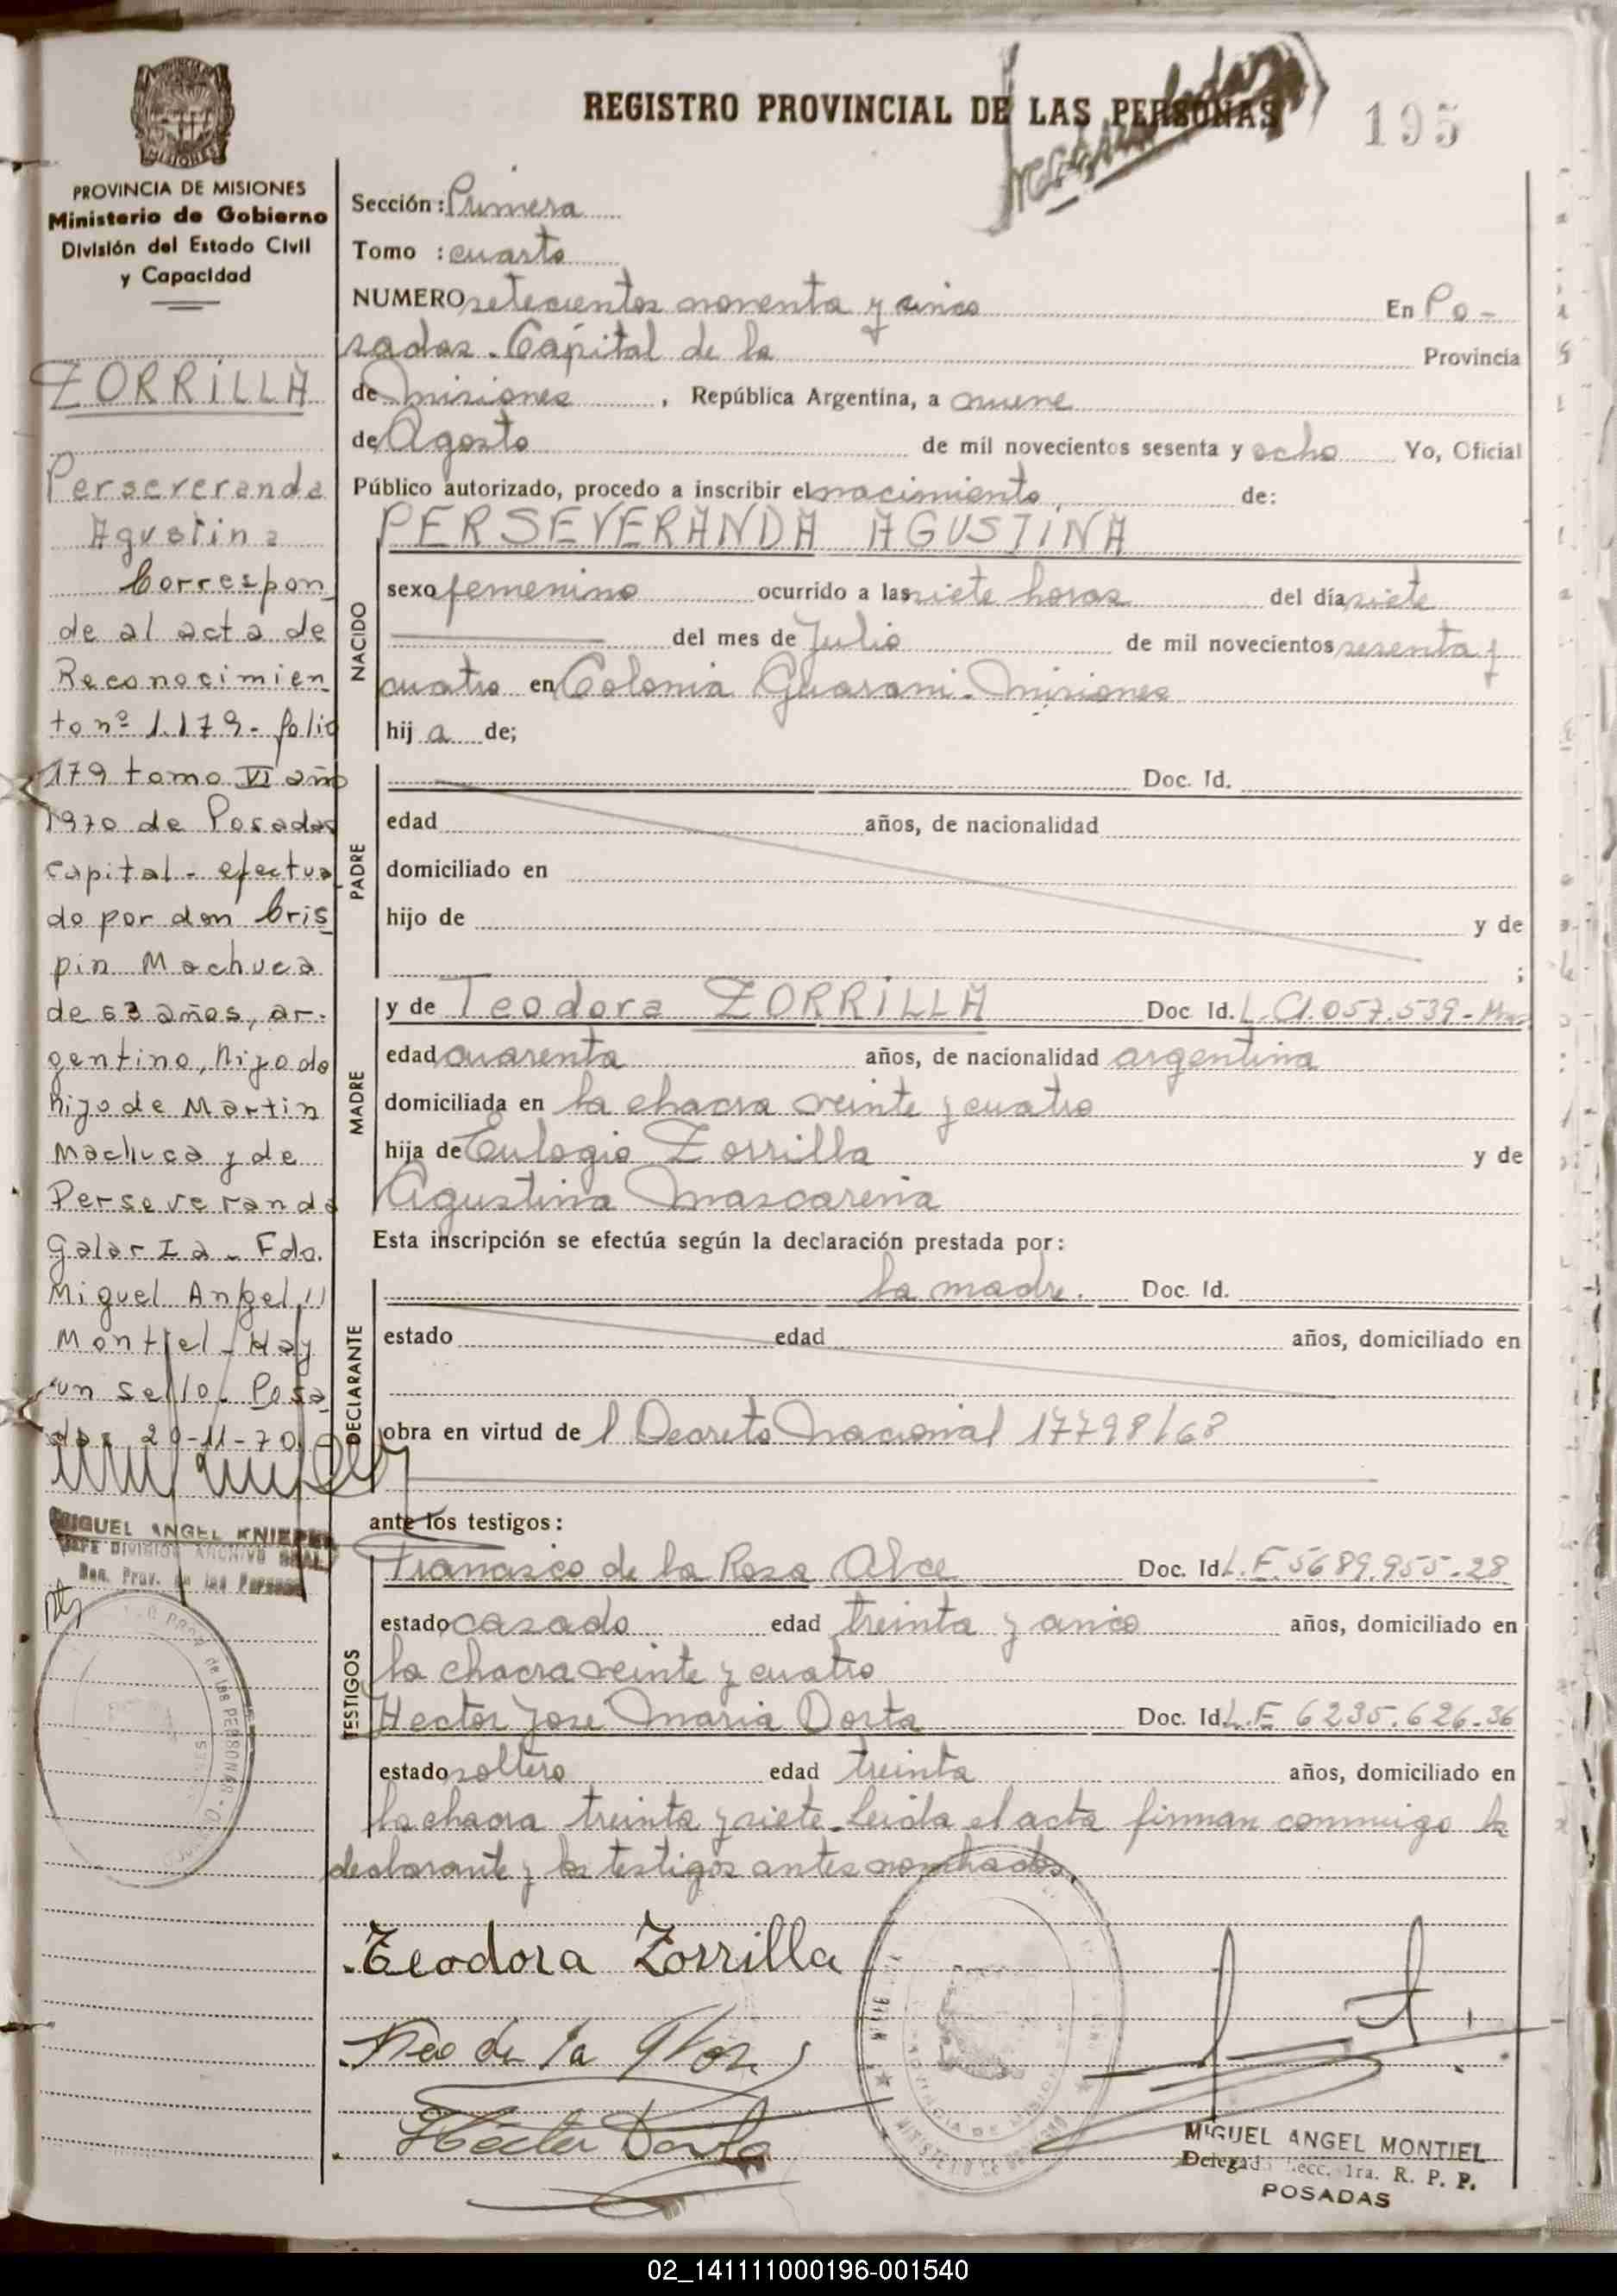 REGISTRO PROVINCIAL DE LAS PERSONAS
195
PROVINCIA DE MISIONES
Ministerio de Gobierno
División del Estado Civil
y Capacidad
ZORRILLA
Perseveranda
Agustina
Correspon
de al acta de
Reconocimien
to nº 1.179 - folio
179 tomo VI año
1970 de Posadas
capital - efectua
do por don Cris
pin Machuca
de 63 años, ar-
gentino, hijo de
hijo de Martin
Machuca y de
Perseveranda
Galarza - Fdo.
Miguel Angel
Montiel - Hay
un sello. Posa
das 20-11-70
MIGUEL ANGEL
JEFE DIVISION ARCHIVO GRAL.
Ren. Prov. de las Personas
Sección: Primera
Tomo : cuarto
NUMERO setecientos noventa y cinco En Po-
sadas. Capital de la Provincia
de Misiones, República Argentina, a nueve
de Agosto de mil novecientos sesenta y ocho Yo, Oficial
Público autorizado, procedo a inscribir el nacimiento de:
PERSEVERANDA AGUSTINA
NACIDO
sexo femenino ocurrido a las siete horas del día siete
del mes de Julio de mil novecientos sesenta y
cuatro en Colonia Guarani - Misiones
hij a de;
PADRE
Doc. Id.
edad años, de nacionalidad
domiciliado en
hijo de y de
;
MADRE
y de Teodora ZORRILLA Doc Id. L.C. 1.057.539-
edad cuarenta años, de nacionalidad argentina
domiciliada en la chacra veinte y cuatro
hija de Eulogio Zorrilla y de
Agustina Mascareña
Esta inscripción se efectúa según la declaración prestada por:
DECLARANTE
la madre. Doc. Id.
estado edad años, domiciliado en
obra en virtud de l Decreto Nacional 17798/68
ante los testigos:
TESTIGOS
Francisco de la Rosa Doc. Id. L.E. 5689.955-28
estado casado edad treinta y cinco años, domiciliado en
la chacra veinte y cuatro
Hector Jose Maria Dorta Doc. Id. L.E 6235.626-36
estado soltero edad treinta años, domiciliado en
la chacra treinta y siete. Leida el acta firman conmigo la
declarante y los testigos antes nombrados.
Teodora Zorrilla
Hector Dorta
MIGUEL ANGEL MONTIEL
Delegado Secc. 1ra. R. P. P.
POSADAS
02_141111000196-001540